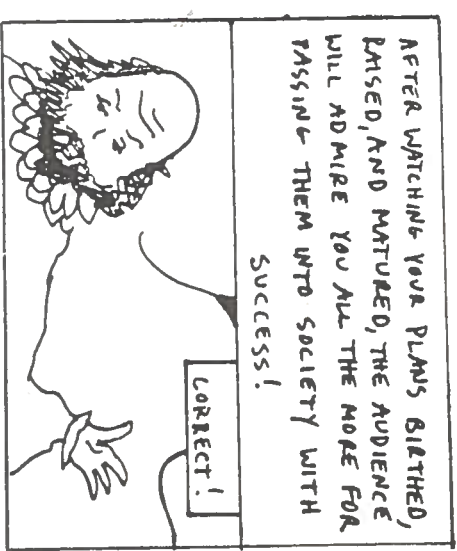 AFTER WATCHING YOUR PLANS BIRTHED,
RAISED, AND MATURED, THE AUDIENCE
WILL ADMIRE YOU ALL THE MORE FOR
PASSING THEM INTO SOCIETY WITH
SUCCESS!
CORRECT!